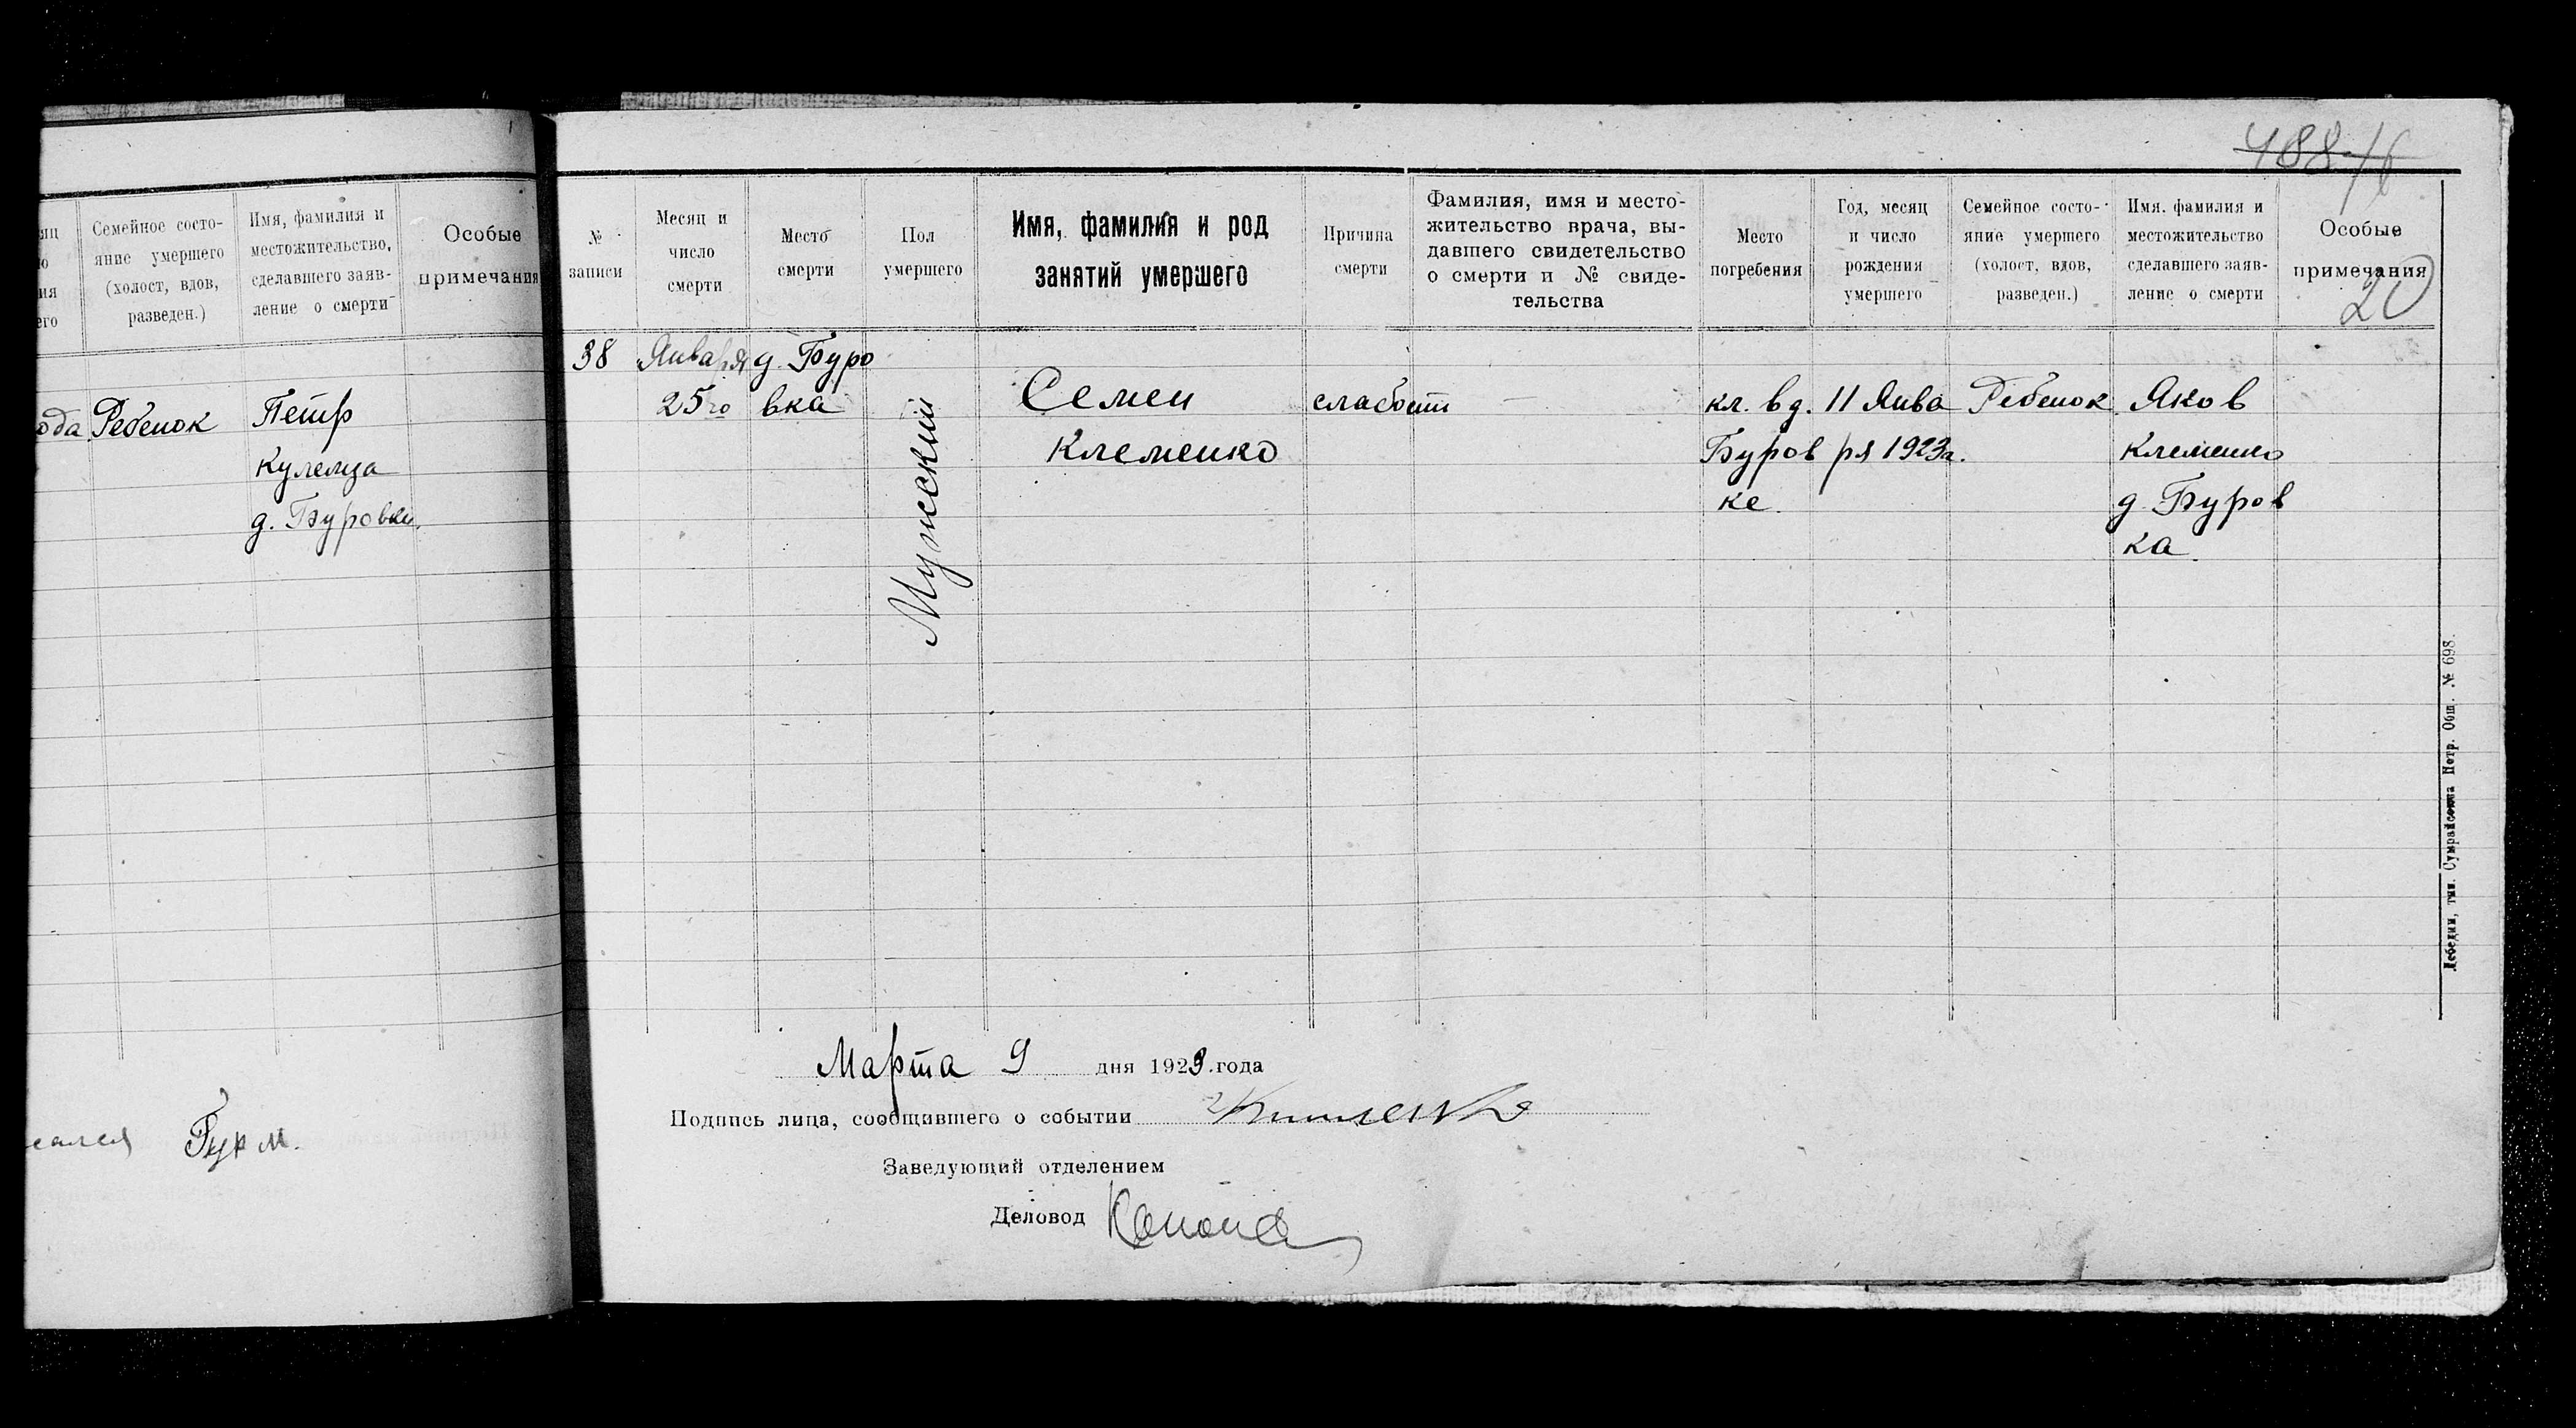 488
20
Семейное состо-
яние умершего
(холост, вдов,
разведен.)
Имя, фамилия и
местожительство,
сделавшего заяв-
ление о смерти
Особые
примечания
Ребенок
Петр
Кулемза
д. Буровки.
Гур м.
№
записи
Месяц и
число
смерти
Место
смерти
Пол
умершего
Имя, фамилия и род
занятий умершего
Причина
смерти
Фамилия, имя и место-
жительство врача, вы-
давшего свидетельство
о смерти и № свиде-
тельства
Место
погребения
Год, месяц
и число
рождения
умершего
Семейное состо-
яние умершего
(холост, вдов,
разведен.)
Имя. фамилия и
местожительство
сделавшего заяв-
ление о смерти
Особые
примечания
38
Января
25го
д. Буро
вка
Мужеский
Семен
Клеменко
слабост
кл. в д.
Буров
ке.
11 Янва
ря 1923г.
Ребенок
Яков
Клеменко
д. Буров
ка
Марта 9 дня 1923.года
Подпись лица, сообщившего о событии
Заведующий отделением
Деловод
Лебедин, тип. Сумрайсоюза Потр. Общ. № 698.